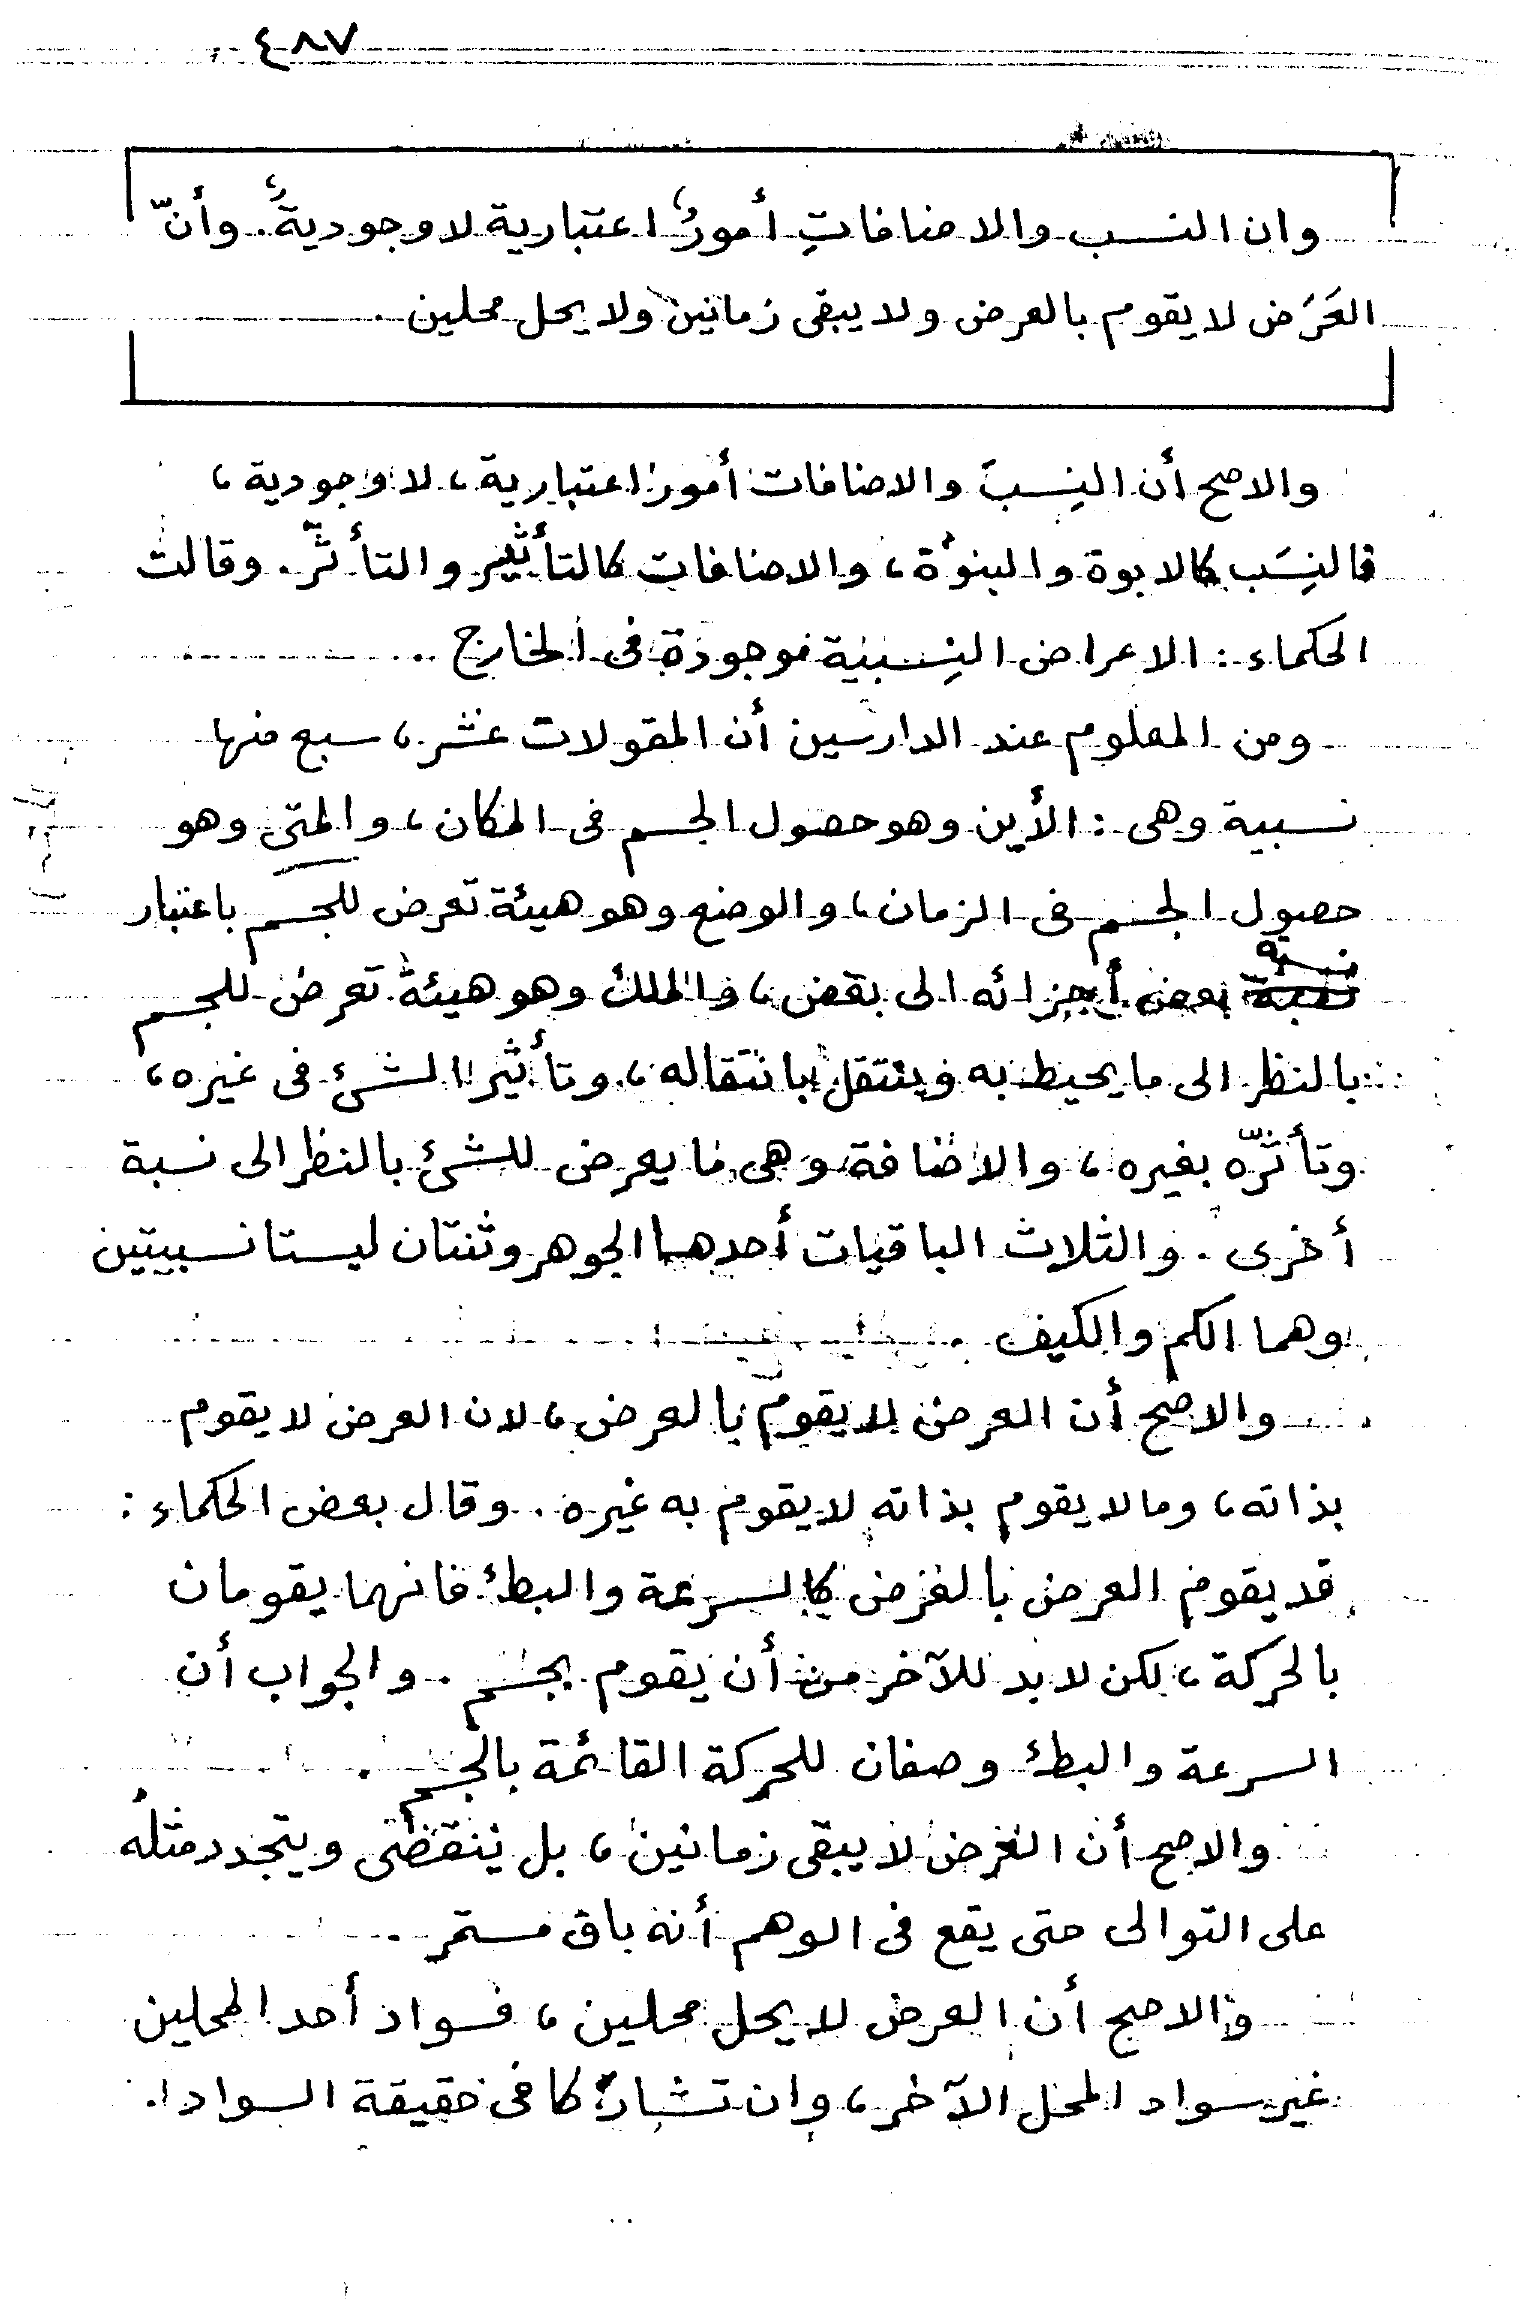 ٤٨٧
وان النسب والاضافاتِ أمورٌ اعتبارية لا وجوديةٌ. وأنّ
العَرَض لا يقوم بالعرض ولا يبقى زمانين ولا يحل محلين .
والاصح أن النِسبَ والاضافات أمور اعتبارية ، لا وجودية ،
فالنِسَب كالابوة والبنوّة ، والاضافات كالتأثير والتأثّر . وقالت
الحكماء : الاعراض النِسبية موجودة فى الخارج ..
ومن المعلوم عند الدارسين أن المقولات عشر ، سبع منها
نسبية وهى : الأين وهو حصول الجسم فى المكان ، والمتى وهو
حصول الجسم فى الزمان ، والوضع وهو هيئة تعرض للجسم باعتبار
نسبة بعض أجزائه الى بعض ، والملك وهو هيئة تعرض للجسم
بالنظر الى ما يحيط به وينتقل بانتقاله ، وتأثير الشئ فى غيره ،
وتأثّره بغيره ، والاضافة وهى ما يعرض للشئ بالنظر الى نسبة
أخرى . والثلاث الباقيات أحدهما الجوهر وثنتان ليستا نسبيتين
وهما الكم والكيف .
والاصح أن العرض لا يقوم بالعرض ، لان العرض لا يقوم
بذاته ، وما لا يقوم بذاته لا يقوم به غيره . وقال بعض الحكماء :
قد يقوم العرض بالعرض كالسرعة والبطئ فانهما يقومان
بالحركة ، لكن لا بد للآخر من أن يقوم بجسم . والجواب أن
السرعة والبطئ وصفان للحركة القائمة بالجسم .
والاصح أن العرض لا يبقى زمانين ، بل ينقضى ويتجدد مثلُه
على التوالى حتى يقع فى الوهم أنه باق مستمر .
والاصح أن العرض لا يحل محلين ، فسواد أحد المحلين
غير سواد المحل الآخر ، وان تشاركا فى حقيقة السواد .